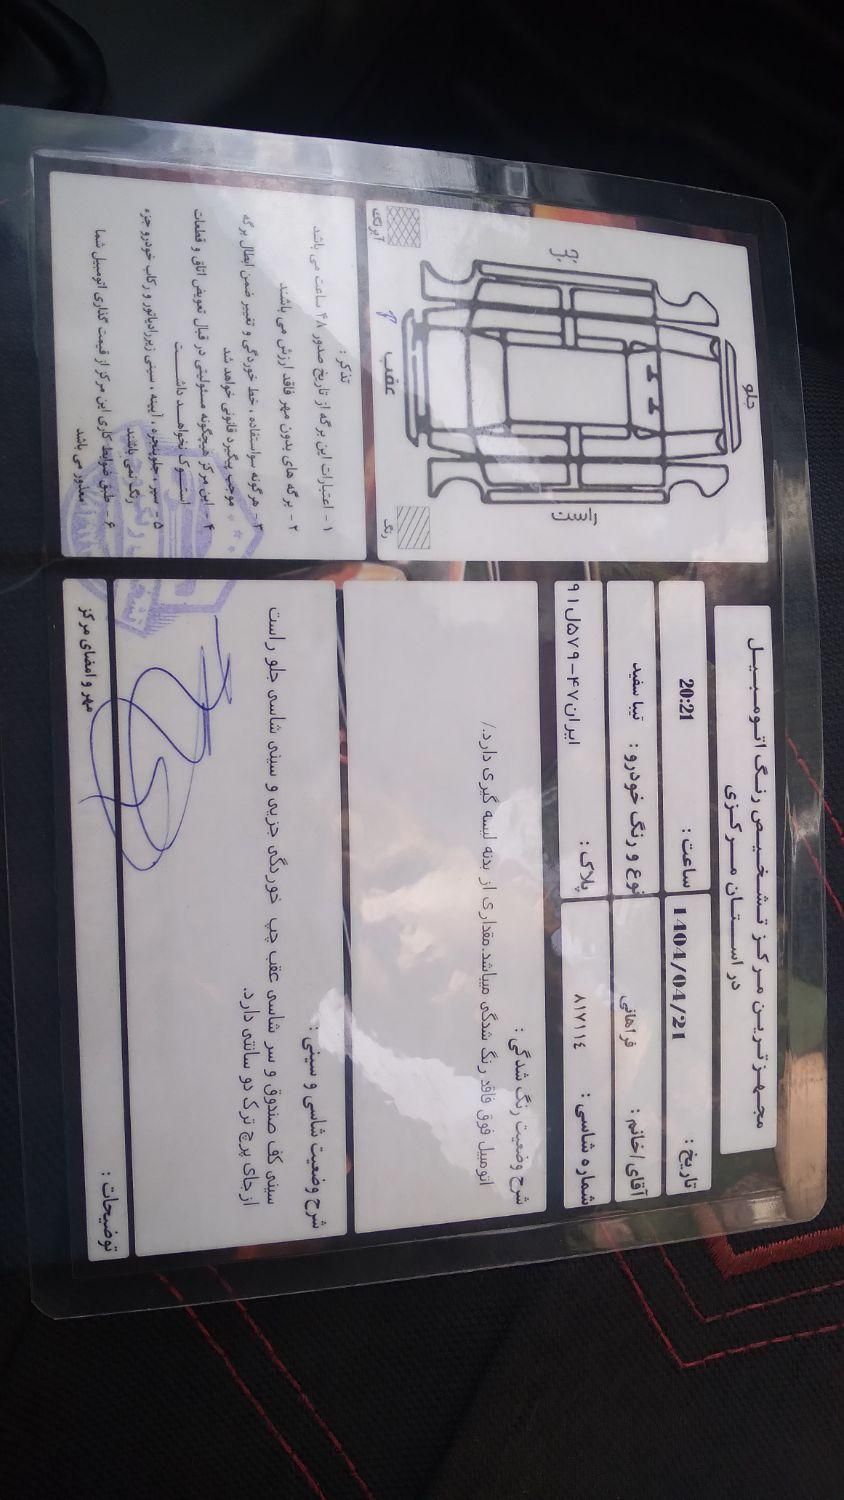 مجهزترین مرکز تشخیص رنگ اتومبیل
در استان مرکزی
تاریخ : 1404/04/21
ساعت : 20:21
آقای/خانم : فراهانی
نوع و رنگ خودرو : تیبا سفید
شماره شاسی : ۸۱۷۱۱۴
پلاک : ایران۴۷-۵۷۹ل۹۱
شرح وضعیت رنگ شدگی :
اتومبیل فوق فاقد رنگ شدگی میباشد.مقداری از بدنه لیسه گیری دارد./
شرح وضعیت شاسی و سینی :
سینی کف صندوق و سر شاسی عقب چپ خوردگی جزیی و سینی شاسی جلو راست
ازجای پرچ ترک دو سانتی دارد.
توضیحات :
مهر و امضای مرکز
جلو
چپ
راست
عقب
آبرنگی
رنگ
تذکر :
۱ - اعتبارات این برگه از تاریخ صدور ۴۸ ساعت می باشد
۲ - برگه های بدون مهر فاقد ارزش می باشند
۳ - هرگونه سواستفاده ، خط خوردگی و تغییر ضمن ابطال برگه
موجب پیگیرد قانونی خواهد شد
۴ - این مرکز هیچگونه مسئولیتی در قبال تعویض اتاق و قطعات
استوک نخواهد داشت
۵ - سپر ، جلوپنجره ، آیینه ، سینی زیررادیاتور و رکاب خودرو جزء
رنگ نمی باشند
۶ - طبق ضوابط کاری این مرکز از قیمت گذاری اتومبیل شما
معذور می باشد